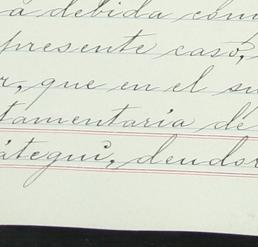 a debida com
presente caso,
r, que en el su
tamentaría de
átegui, deudor